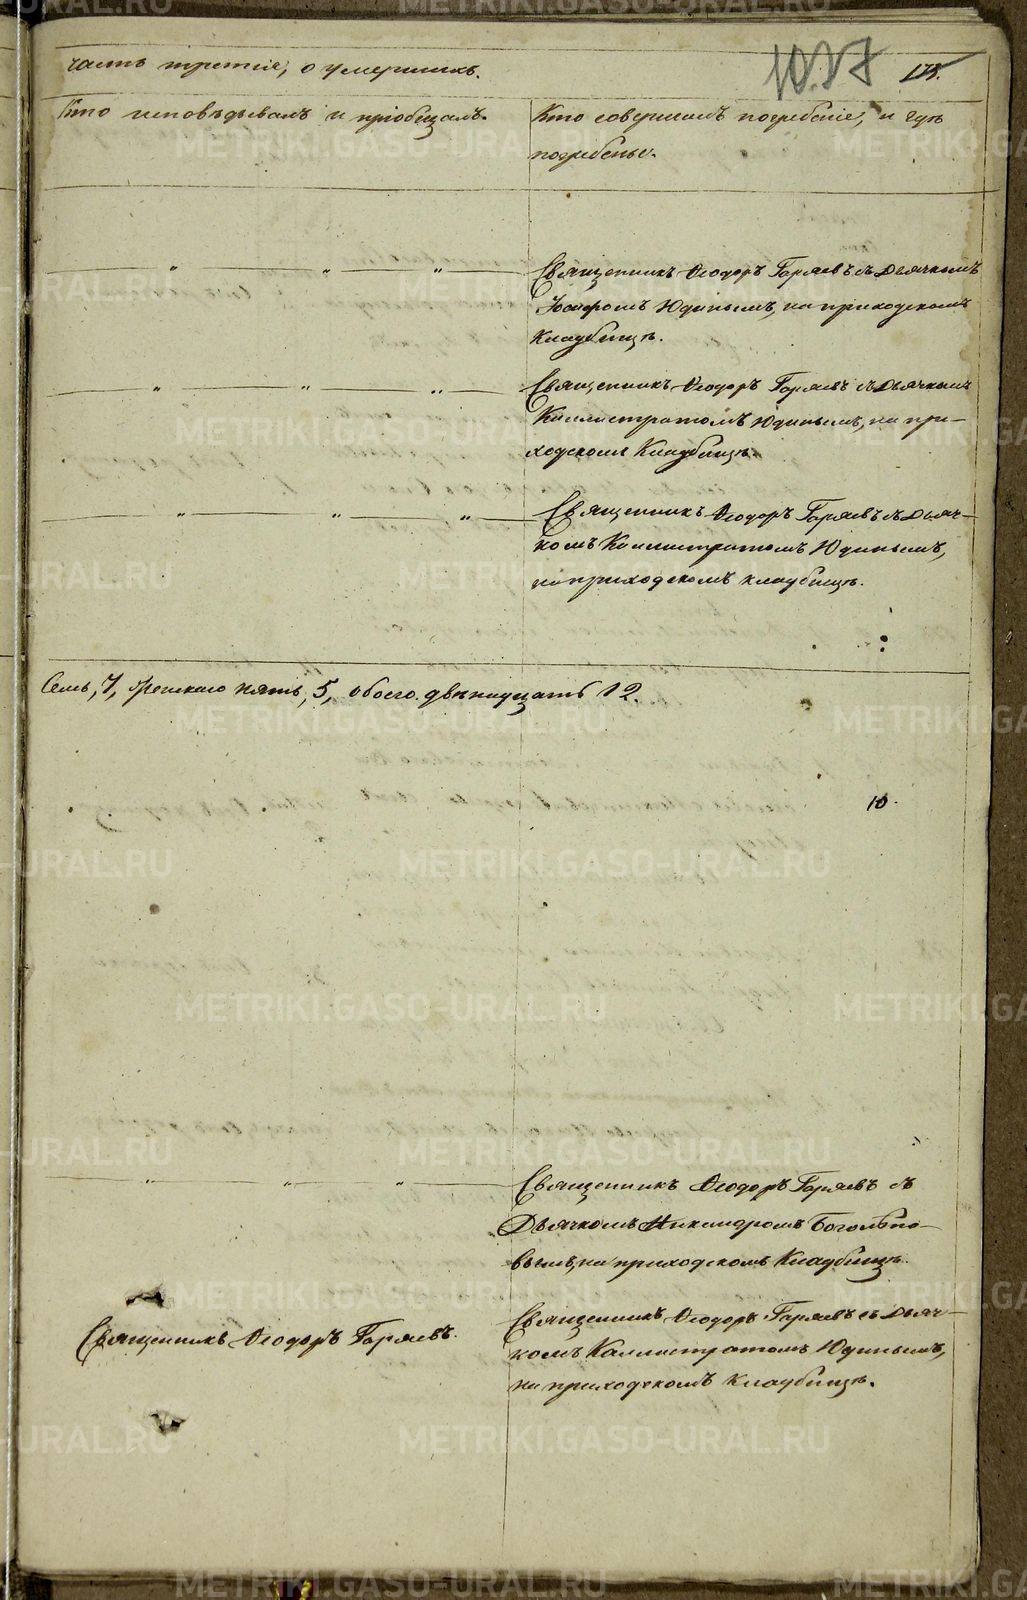 часть третія, о умершихъ.
1037
175.
Кто исповѣдывалъ и пріобщалъ.
Кто совершалъ погребеніе, и гдѣ
погребены.
Священникъ Ѳеодоръ Горяевъ съ Дьячкомъ
Юдинымъ, на приходскомъ
Кладбищѣ.
Священникъ Ѳеодоръ Горяевъ съ Дьячкомъ
Каллистратомъ Юдинымъ, на при-
ходскомъ Кладбищѣ.
Священникъ Ѳеодоръ Горяевъ съ Дьяч-
комъ Каллистратомъ Юдинымъ,
на приходскомъ кладбищѣ.
Семь, 7, Женскаго пять, 5, обоего двѣнадцать 12.
10.
Священникъ Ѳеодоръ Горяевъ съ
Дьячкомъ Никандромъ Боголѣпо-
вымъ, на приходскомъ Кладбищѣ.
Священникъ Ѳеодоръ Горяевъ.
Священникъ Ѳеодоръ Горяевъ съ Дьяч-
комъ Каллистратомъ Юдинымъ,
на приходскомъ кладбищѣ.
METRIKI.GASO-URAL.RU